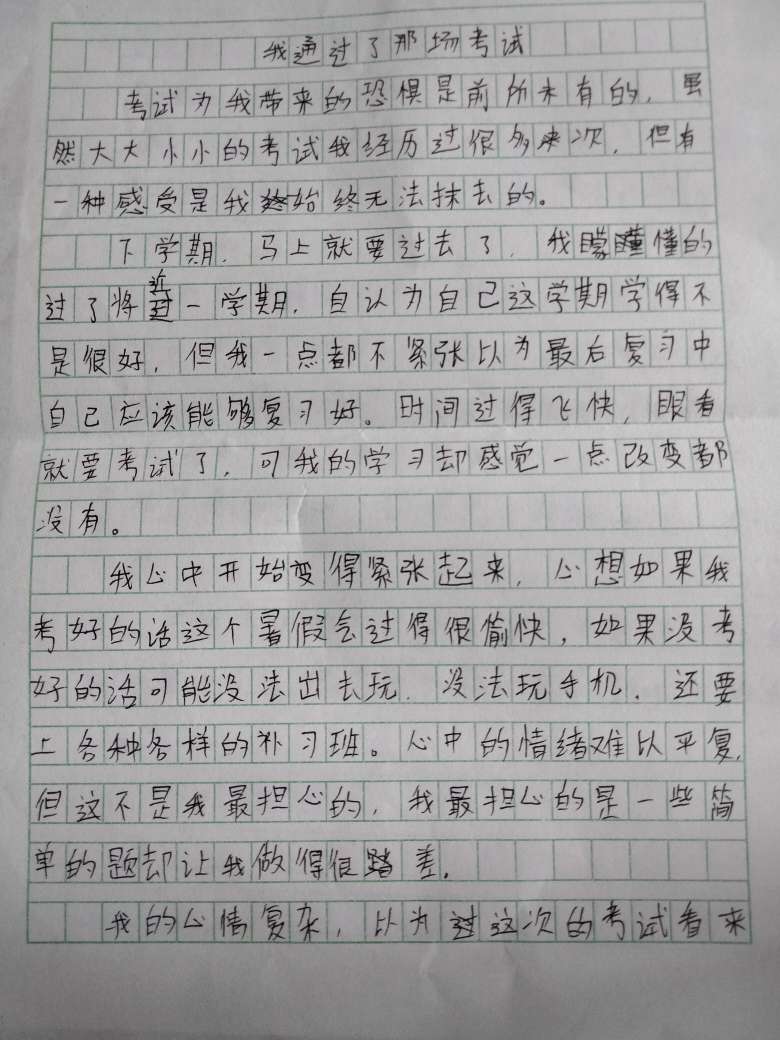 我通过了那场考试
考试为我带来的恐惧是前所未有的，虽
然大大小小的考试我经历过很多来次，但有
一种感受是我始终无法抹去的。
下学期，马上就要过去了，我朦瞳懂的
过了将近一学期，自认为自己这学期学得不
是很好，但我一点都不紧张以为最后复习中
自己应该能够复习好。时间过得飞快，眼看
就要考试了，可我的学习却感觉一点改变都
没有。
我心中开始变得紧张起来，心想如果我
考好的话这个暑假会过得很愉快，如果没考
好的话可能没法出去玩，没法玩手机，还要
上各种各样的补习班。心中的情绪难以平复，
但这不是我最担心的，我最担心的是一些简
单的题却让我做得很差，
我的心情复杂，以为过这次的考试看来